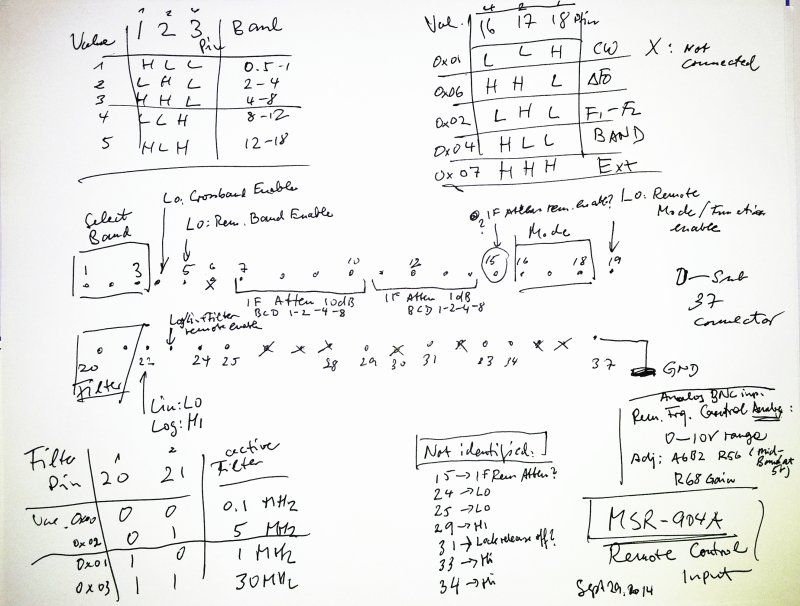 1 2 4
Value 1 2 3 Pin Band
1 H L L 0.5-1
2 L H L 2-4
3 H H L 4-8
4 L L H 8-12
5 H L H 12-18
4 2 1
Val. 16 17 18 Pin
0x01 L L H CW
0x06 H H L ΔF0
0x02 L H L F1-F2
0x04 H L L BAND
0x07 H H H Ext
X: Not
connected
Lo: Crossband Enable
Lo: Rem. Band Enable
Select
Band
IF Atten rem. enable?
?
Lo: Remote
Mode/Function
enable
Mode
1 3 5 6 7 10 12 15 16 18 19
IF Atten 10dB
BCD 1-2-4-8
IF Atten 1dB
BCD 1-2-4-8
D-Sub
37
connector
Log/Lin+Filter
remote enable
20 22 24 25 28 29 30 31 33 34 37
Filter
GND
Lin: LO
Log: HI
Analog BNC inp.
Rem. Frq. Control Analog:
0-10V range
Adj: A6B2 R56 (mid-
Band at
5V)
R68 Gain
1 2
Filter
Pin 20 21 active
Filter
Val. 0x00 0 0 0.1 MHz
0x02 0 1 5 MHz
0x01 1 0 1 MHz
0x03 1 1 30MHz
Not identified:
15→IF Rem Atten?
24→LO
25→LO
29→HI
31→Lock release off?
33→Hi
34→Hi
MSR-904A
Remote Control
Input
Sept 29, 2014